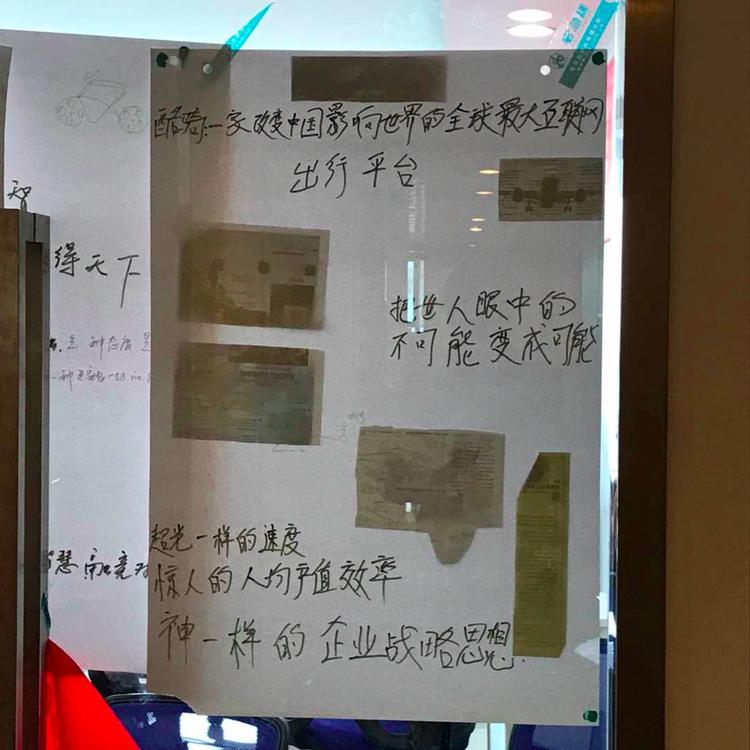 酷骑:一家改变中国影响世界的全球最大互联网
出行平台
把世人眼中的
不可能变成可能
超光一样的速度
惊人的人均产值效率
神一样的企业战略思想.
智
得天下
是一种态度是
慧融竞